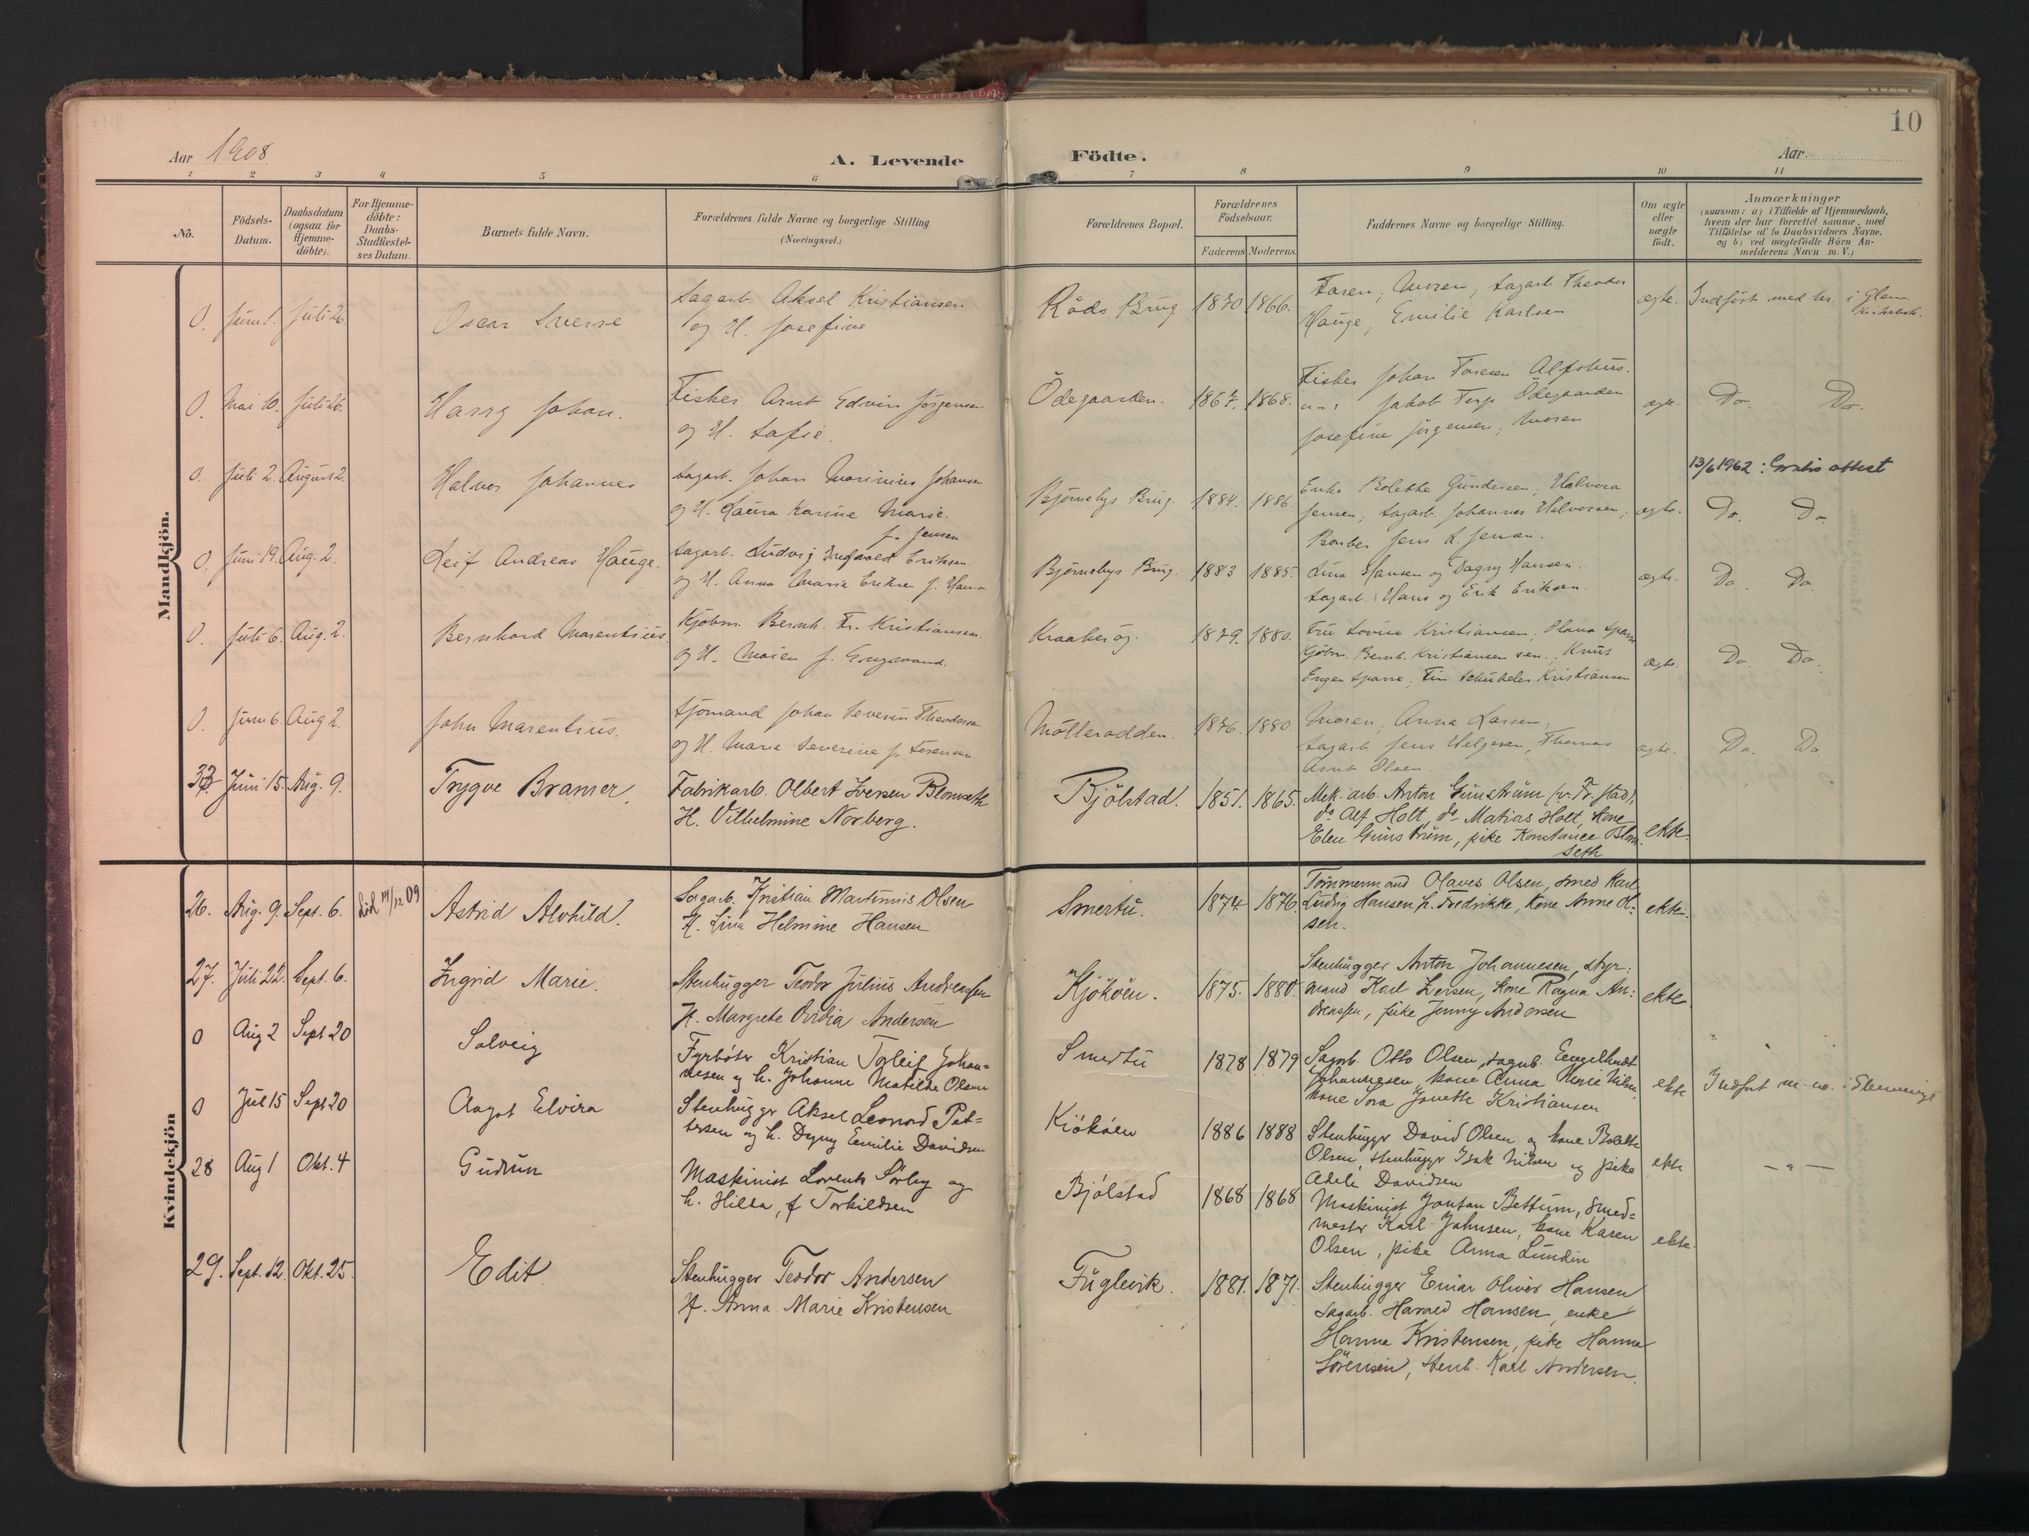 10
Aar 1908
A. Levende Födte.
Aar.
1 2 3 4 5 6 7 8 9 10 11
Nö.
Födsels-
Datum.
Daabsdatum
(ogsaa for
Hjemme-
döbte).
For Hjemme-
döbte:
Daabs-
Stadfæstel-
ses Datum.
Barnets fulde Navn.
Forældrenes fulde Navne og borgerlige Stilling
(Næringsvei.)
Forældrenes Bopæl.
Forældrenes
Födselsaar.
Faderens Moderens.
Faddernes Navne og borgerlige Stilling.
Om ægte
eller
uægte
födt.
Anmærkninger
(saasom: a) i Tilfælde af Hjemmedaab,
hvem der har forrettet samme, med
Tilföielse af to Daabsvidners Navne.
og b) ved uægtefödte Börn An-
melderens Navn m. V.)
Mandkjön.
0. Juni 1. Juli 26. Oscar Sverre
Sagarb. Aksel Kristiansen
og H. Josefine
Röds Brug 1870 1866.
Faren, Moren, Sagarb. Theodor
Hauge, Emilie Karlsen
ægte. Indført med nr. i Glem.
0. Mai 10. Juli 26. Harry Johan.
Fisker Arnt Edvin Jörgensen
og H. Sofie.
Ödegaarden. 1867. 1868.
Fisker Johan Foresen Alfshus.
Jakob Terp Ödegaarden
Josefine Jörgensen, Moren
ægte. Do. Do.
13/6 1962: Gratis attest
0. Juli 2. August 2. Halvor Johannes
Sagarb. Johan Marinius Johansen
og H. Laura Karine Marie
f. Jensen
Bjørnebys Brug. 1884. 1886.
Enke Bolette Gundersen, Halvora
Jensen, Sagarb. Johannes Halvorsen,
Jens L. Jensen.
ægte. Do. Do.
0. Juni 19. Aug. 2. Leif Andreas Hauge.
Sagarb. Ludvig Ingvald Eriksen
og H. Anna Maria Erikse f. Hans
Bjørnebys Brug. 1883 1885.
Lina Hansen og Dagny Hansen.
Sagarb. Hans og Erik Eriksen.
ægte. Do Do
0. Juli 6. Aug. 2. Bernhard Marentius
Kjöbm. Bernh. Fr. Kristiansen
og H. f.
Kraaberög. 1879. 1880.
Fru Lovise Kristiansen, Olava Sparre
Kjöbm. Bernh. Kristiansen sen., Knus
Engen Sparre, Kristiansen
ægte. Do. Do.
0. Juni 6. Aug 2. John Marentius.
Sjømand Johan Severin Theodorsen
og H. Maria Severine f. Sörensen
Mölleradden. 1876. 1880.
Moren, Anna Larsen,
Sagarb. Jens Helgesen, Thomas
Arnt Olsen.
ægte. Do. Do
33 Juni 15. Aug. 9. Trygve Bramer.
Fabrikarb. Olbert Iversen Blomseth
H. Vilhelmine Norberg.
Bjölstad. 1851. 1865.
Mek. arb. Anton Gunstrüm (v. Fr. stad),
do Alf Holt, do Matias Holt, kone
Elen Gunstrüm, pike Konstance Blom-
seth
ekte-
Kvindekjön
26. Aug. 9. Sept. 6. död 14/12 09 Astrid Alvhild.
Sagarb. Kristian Martinius Olsen
H. Lina Helmine Hansen
Smertu. 1874. 1876.
Tömmermand Olaves Olsen, smed Karl
Ludvig Hansen, h. Fredrikke, kone Anne Ol-
sen.
ekte-
27. Juli 22. Sept. 6. Ingrid Marie.
Stenhugger Teodor Julius Andreassen
H. Margrete Ovidia Andersen
Kjököen. 1875. 1880.
Stenhugger Anton Johannesen, styr:
mand Karl Iversen, kone Ragna An:
dreassen, pike Jenny Andersen
ekte
0 Aug 2 Sept 20 Solveig
Fyrböter Kristian Torleif Johan-
nesen og h. Johanne Matilde Olsen
Smertu 1878 1879
Sagarb Otto Olsen, sagarb. Eengelhardt
Johannesen, kone Anna Marie Nilsen
kone Tora Janette Kristiansen
ekte Indført m. no. i Glemminge
0 Jul 15 Sept 20 Aagot Elvira
Stenhugger Aksel Leonard Pet-
tersen og h. Dagny Emilie Davidsen
Kiököen 1886 1888
Stenhugger David Olsen og kone Bolette
Olsen, stenhugger Isak Nilsen og pike
Adele Davidsen
ekte — " —
28 Aug 1 Okt. 4 Gudrun
Maskinist Lorents Sörby og
h. Hilda, f Torkildsen
Bjölstad 1868 1868
Maskinist Jontan Bettum, smed=
mester Karl Johnsen, kone Karen
Olsen, pike Anna Lundin
ekte
29. Sept. 12. Okt. 25. Edit.
Stenhugger Teodor Andersen
H. Anna Marie Kristensen
Fuglevik. 1881. 1871.
Stenhugger Einar Oliver Hansen
sagarb. Harald Hansen, enke
Hanna Kristensen, pike Hanna
Sörensen, stenh. Karl Andersen.